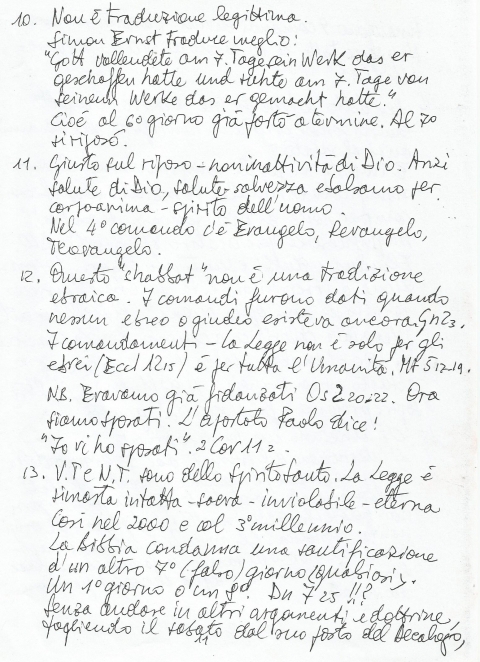 10. Non è traduzione legittima.
Simon Ernst traduce meglio:
"Gott vollendete am 7. Tage sein Werk das er
geschaffen hatte und ruhte am 7. Tage von
seinem Werke das er gemacht hatte."
Cioè al 6º giorno già portò a termine. Al 7º
si riposó.
11. Giusto sul riposo - non inattività di Dio. Anzi
salute di Dio, salute-salvezza e balsamo per
corpo-anima - spirito dell'uomo.
Nel 4º comando c'è Evangelo,
12. Questo "shabbat" non è una tradizione
ebraica. I comandi furono dati quando
nessun ebreo o giudeo esisteva ancora. Gn 2₃.
I comandamenti - la Legge non è solo per gli
ebrei (Eccl 12₁₃) è per tutta l'Umanità. Mt 5 ₁₇₋₁₉.
NB. Eravamo già fidanzati Os 2 ₂₀₋₂₂. Ora
siamo sposati. L'apostolo Paolo dice!
"Io vi ho sposati". 2 Cor 11 ₂.
13. V.T e N.T. sono dello Spirito Santo. La Legge è
rimasta intatta - sacra - inviolabile - eterna
Così nel 2000 e col 3º millennio.
La Bibbia condanna una santificazione
d'un altro 7º (falso) giorno (qualsiasi).
Un 1º giorno o un 8º! Dn 7 25 !!?
Senza andare in altri argomenti e dottrine,
togliendo il sabato dal suo posto del Decalogo,
11